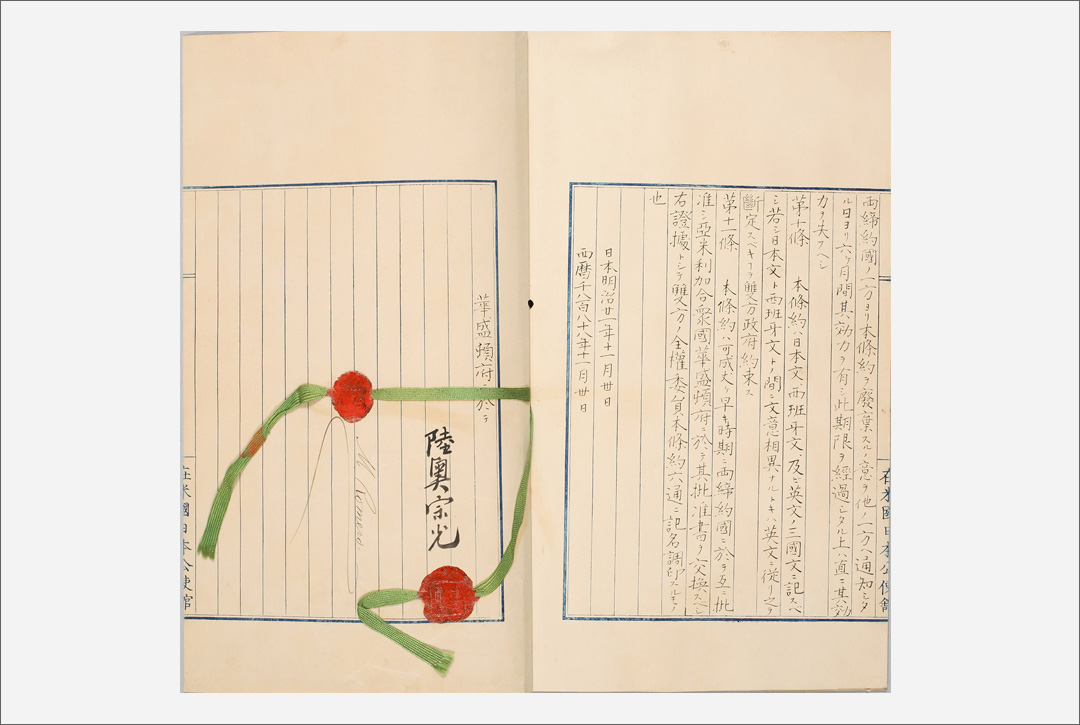 両締約國ノ一方ヨリ本條約ヲ廢棄スルノ意ヲ他ノ一方ヘ通知シタ
ル日ヨリ六ヶ月間其効力ヲ有シ此期限ヲ經過シタル上ハ直ニ其効
力ヲ失フヘシ
第十條 本條約ハ日本文、西班牙文、及ヒ英文ノ三國文ニ記スヘ
シ若シ日本文ト西班牙文トノ間ニ文意相異ナルトキハ英文ニ從リ之ヲ
斷定スベキヿヲ雙方政府約束ス
第十一條 本條約ハ可成丈ケ早キ時期ニ両締約國ニ於テ互ニ批
准シ亞米利加合衆國華盛頓府ニ於テ其批准書ヲ交換スヘシ
右證據トシテ雙方ノ全權委員本條約六通ニ記名調印スルモノ
也
日本明治廿一年十一月卅日
西曆千八百八十八年十一月卅日
在米國日本公使館
華盛頓府ニ於テ
陸奥宗光
M Romero
在米國日本公使館